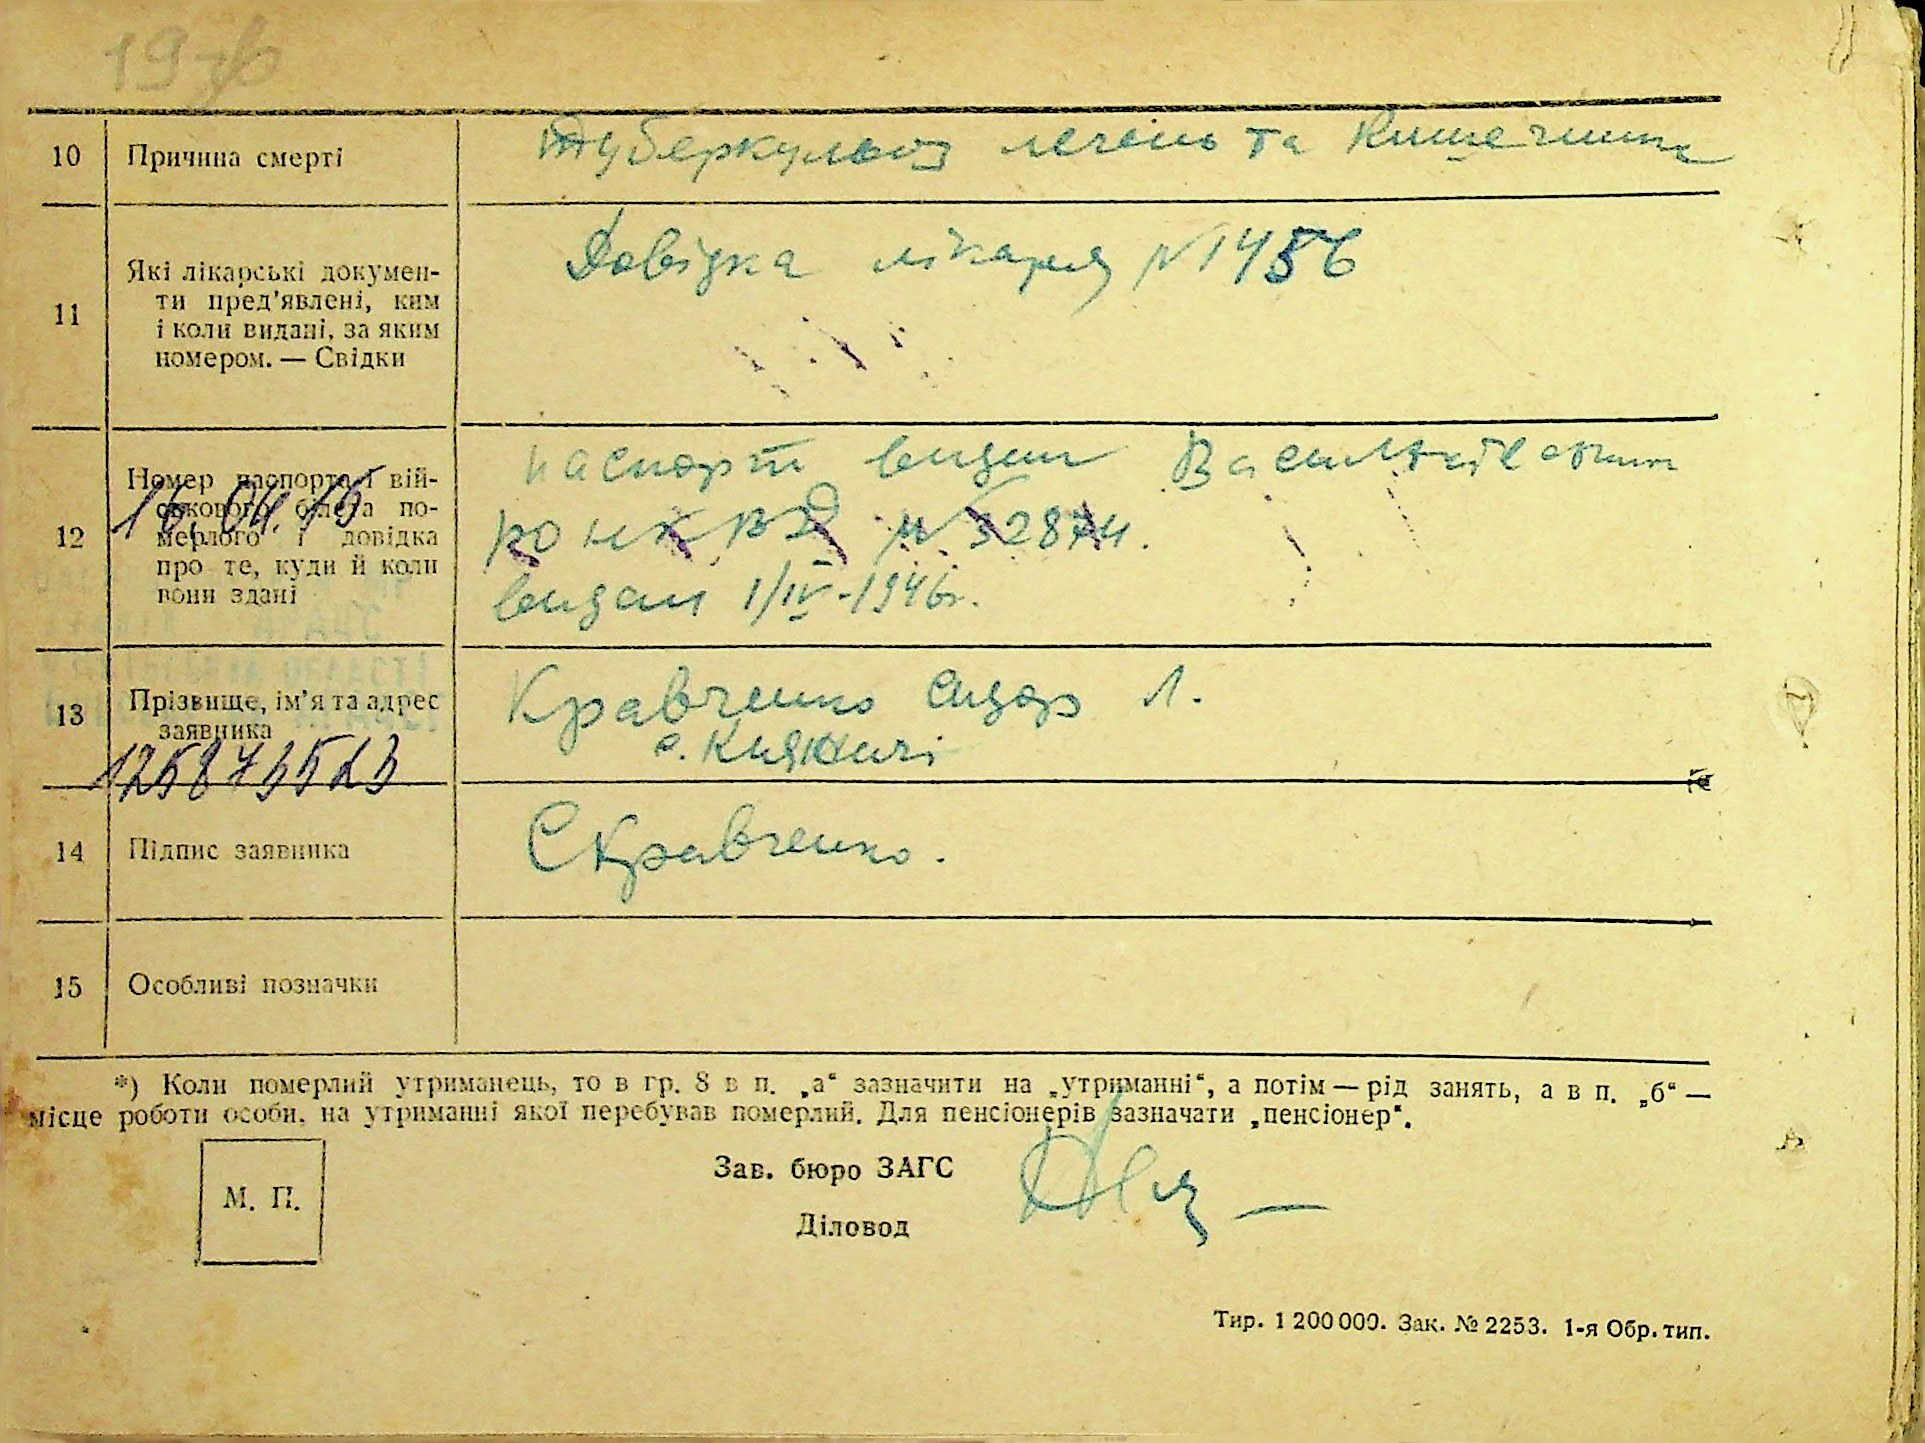 10 Причина смерті Туберкульоз легень та Кишечника
11 Які лікарські докумен-
ти пред'явлені, ким
і коли видані, за яким
номером. — Свідки
Довідка лікаря № 1456
12 Номер паспорта і вій-
ськового білета по-
мерлого і довідка
про те, куди й коли
вони здані
16.04.15
паспорт видан Васильківським
РО НКВД №
видан 1/IV-1946г.
13 Прізвище, ім'я та адрес
заявника
Кравченко Сидор Л.
с. Княжичі
14 Підпис заявника СКравченко.
15 Особливі позначки
*) Коли померлий утриманець, то в гр. 8 в п. „а“ зазначити на „утриманні“, а потім — рід занять, а в п. „б“ —
місце роботи особи, на утриманні якої перебував померлий. Для пенсіонерів зазначати „пенсіонер“.
М. П.
Зав. бюро ЗАГС
Діловод
Тир. 1 200 000. Зак. № 2253. 1-я Обр. тип.